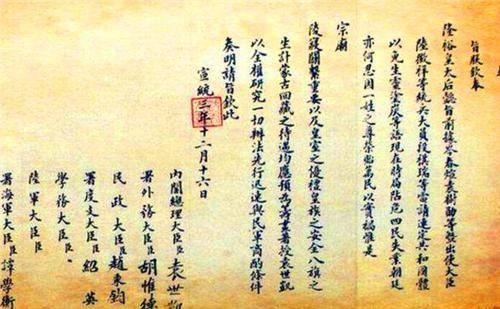 旨朕欽奉
隆裕皇太后懿旨前據岑春煊袁樹勛等暨出使大臣
陸徵祥等統兵大員段祺瑞等電請速定共和國體
以免生靈塗炭等語現在時局阽危四民失業朝廷
亦何忍因一姓之尊榮貽萬民以實禍惟是
宗廟
陵寢關繫重要以及皇室之優禮皇族之安全八旗之
生計蒙古回藏之待遇均應預為籌畫著授袁世凱
以全權研究一切辦法先行迅速與民軍商酌條件
奏明請旨欽此
宣統三年十二月十六日
內閣總理大臣臣袁世
署外務大臣臣胡惟德
民政大臣臣趙秉鈞
署度支大臣臣紹英
學務大臣臣
陸軍大臣臣
署海軍大臣臣譚學衡